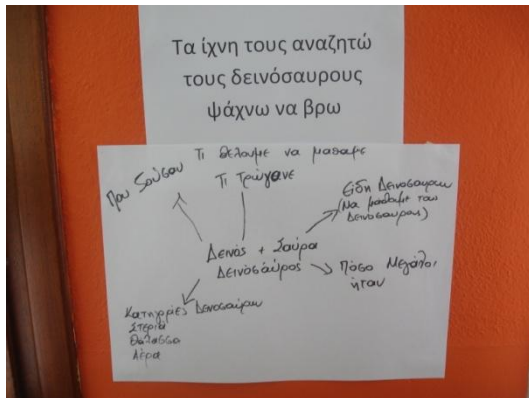 Τα ίχνη τους αναζητώ
τους δεινόσαυρους
ψάχνω να βρω
Τι θέλουμε να μαθαμε
Που ζούσαν
Τι τρώγανε
Είδη Δεινοσαύρων
(Να μάθουμε τους
Δεινοσαύρους)
Δεινός + Σαύρα
Δεινόσαυρος
Πόσο Μεγάλοι
ήταν
Κατηγορίες Δεινοσαύρων
Στεριά
Θάλασσα
Αέρα